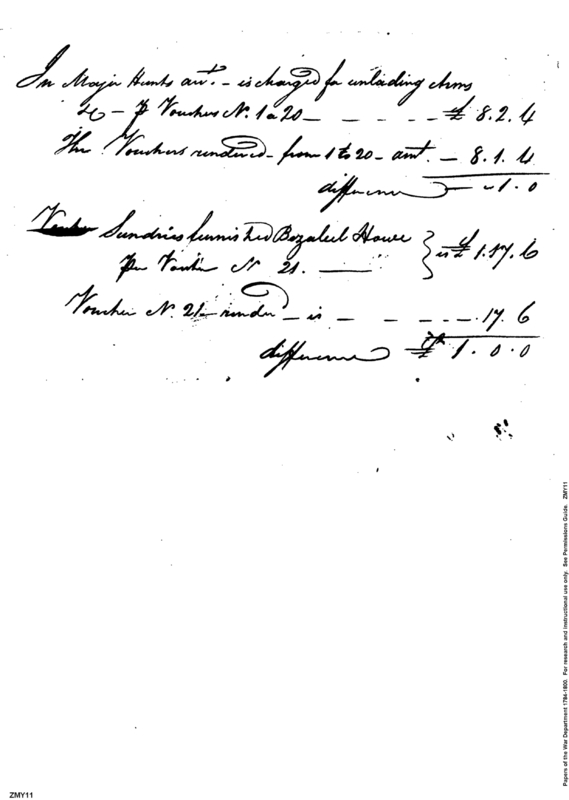 In Major Hunts acct. - is charged for unlading Arms
&c - P Vouchers N. 1 a 20 - - - - - £ 8.2.4
The Vouchers rendered - from 1 to 20 - amt. - 8.1.4
difference - 1.0
Sundries furnished Bezaleel Howe } is £ 1.17.6
Per Voucher N 21.
Voucher N. 21 - render'd - is - - - - - 17.6
difference £ 1.0.0
Papers of the War Department 1784-1800. For research and instructional use only. See Permissions Guide. ZMY11
ZMY11